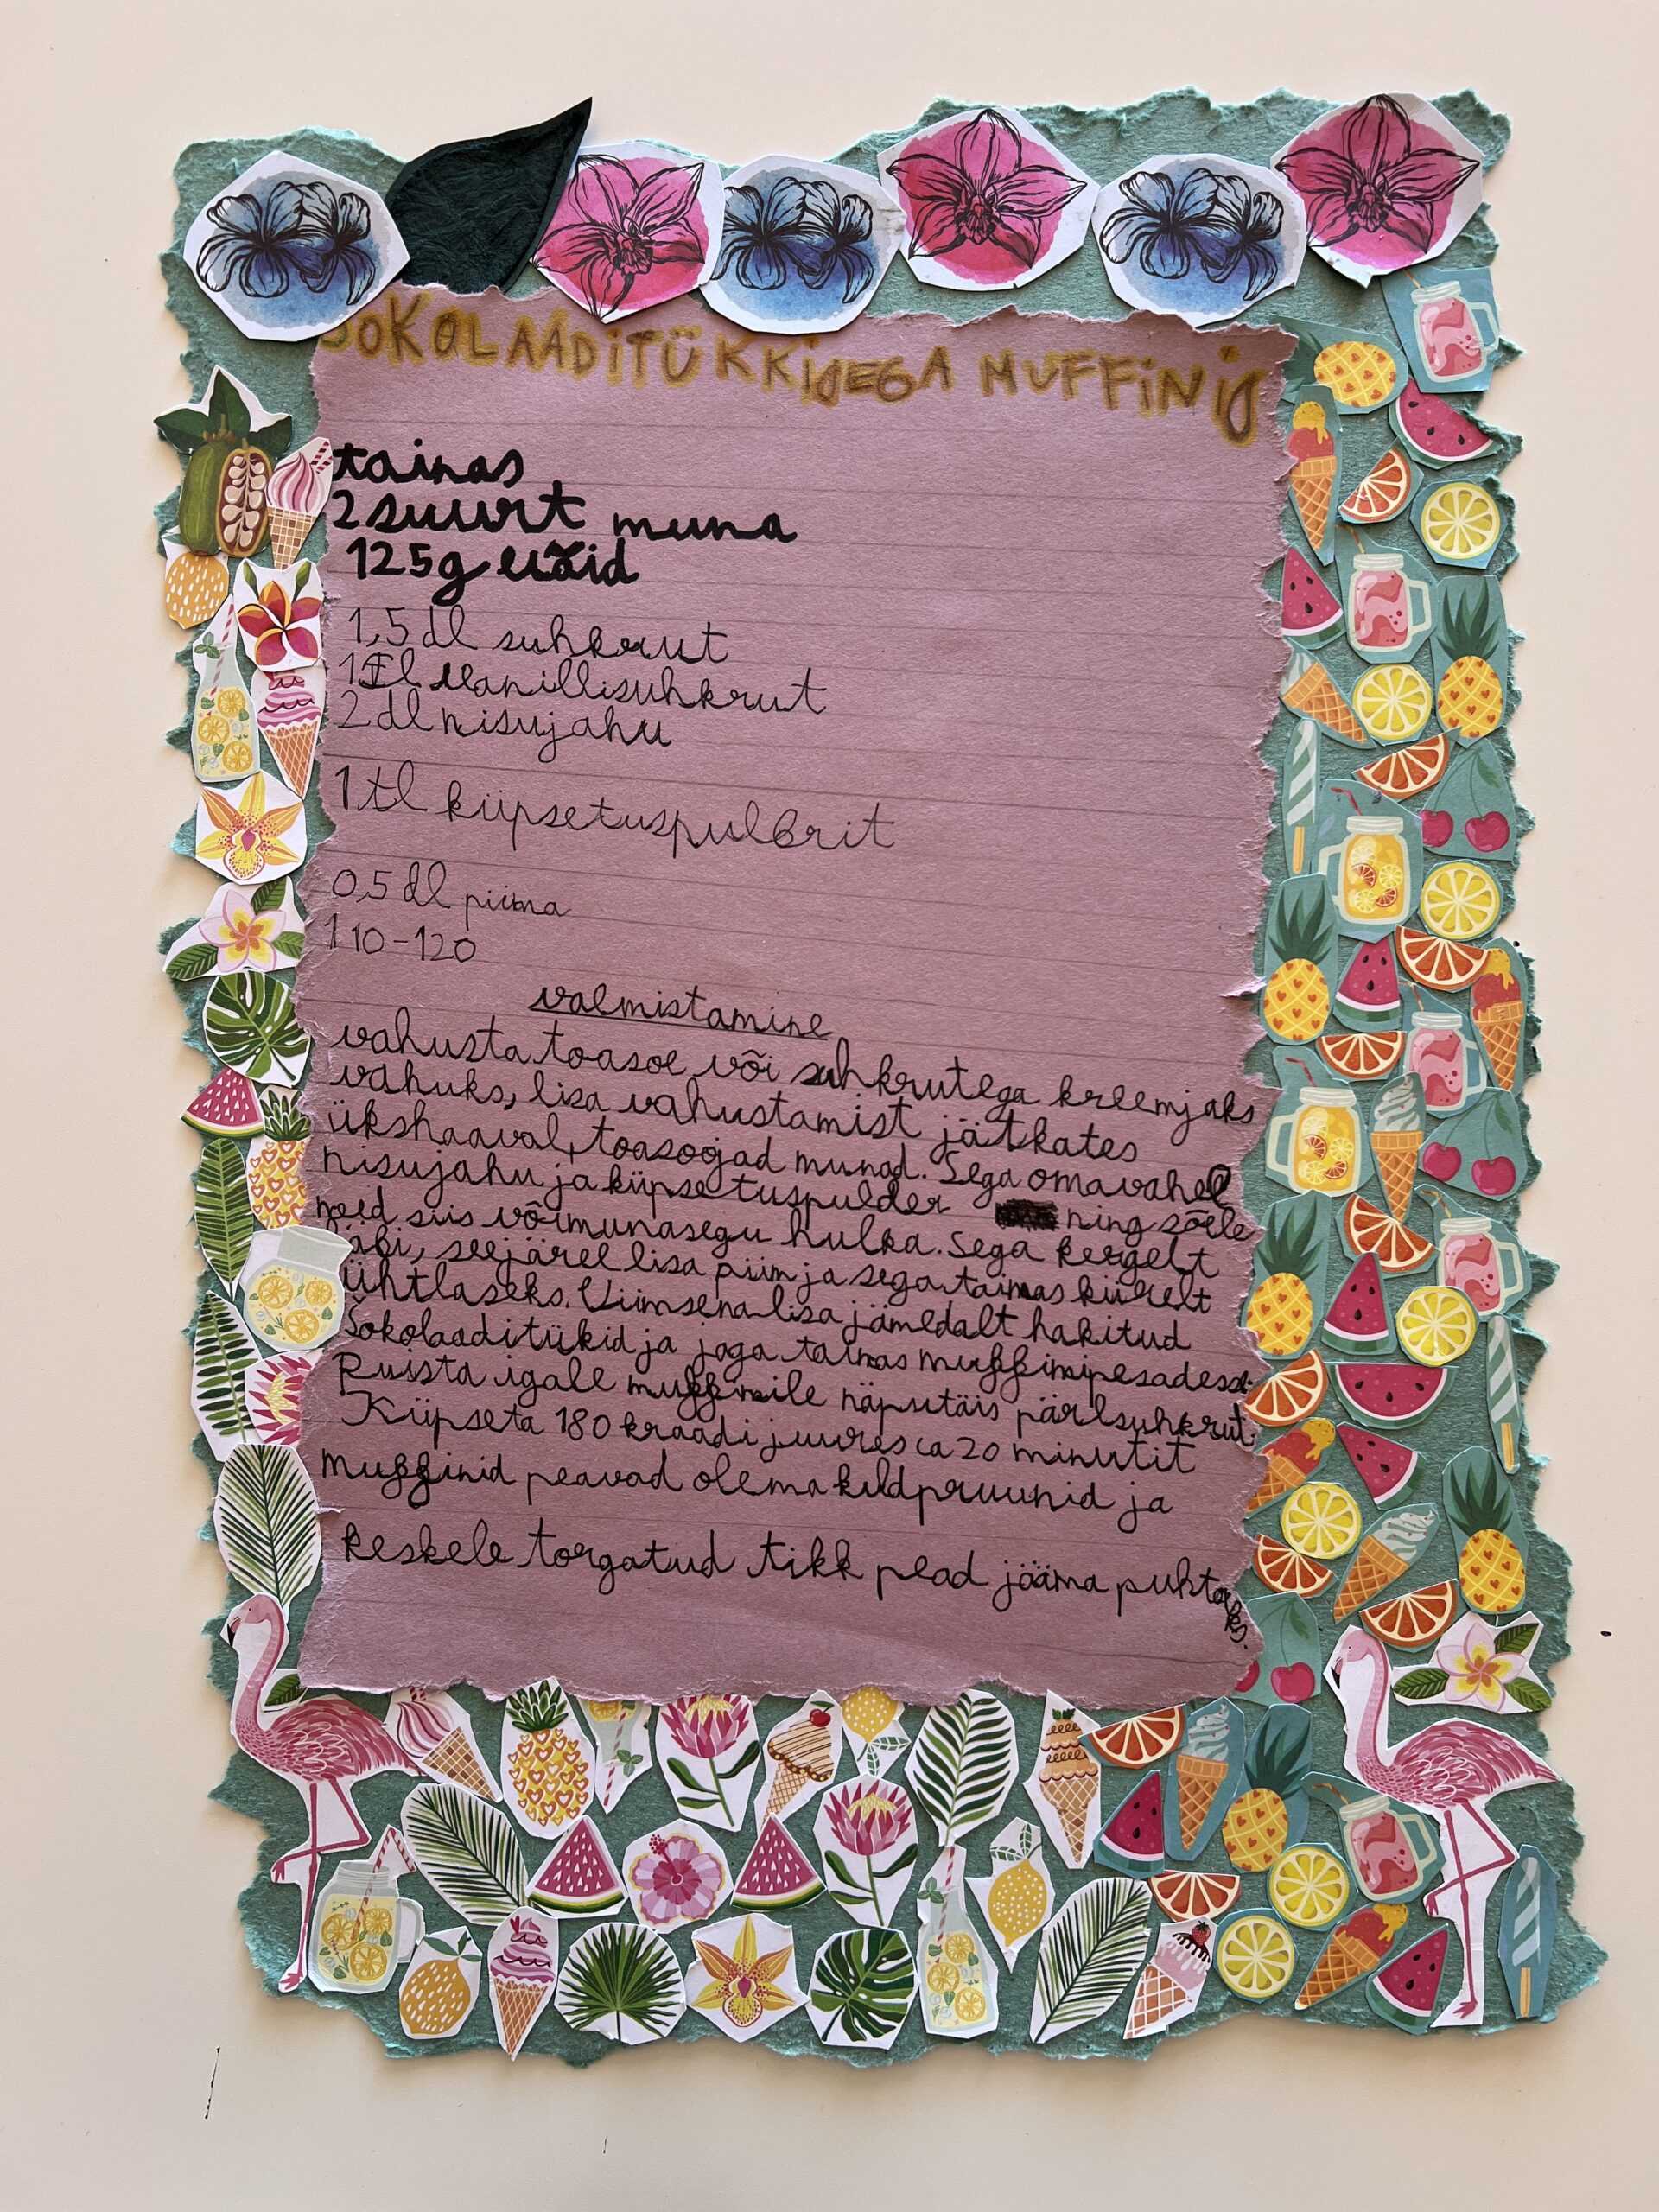 ŠOKOLAADITÜKKIDEGA MUFFINID
tainas
2 suurt muna
125g võid
1,5 dl suhkrut
1 tl vanillisuhkrut
2 dl nisujahu
1 tl küpsetuspulbrit
0,5 dl piima
110-120
valmistamine
vahusta toasoe või suhkrutega kreemjaks
vahuks, lisa vahustamist jätkates
ükshaaval, toasoojad munad. Sega omavahel
nisujahu ja küpsetuspulder ning sõele
need siis võimunasegu hulka. Sega kergelt
läbi, seejärel lisa piim ja sega tainas kiirelt
ühtlaseks. Viimsena lisa jämedalt hakitud
šokolaaditükid ja jaga tainas muffinipesadesse.
Puista igale muffinile näputäis pärlsuhkrut.
Küpseta 180 kraadi juures ca 20 minutit
Muffinid peavad olema kuldpruunid ja
keskele torgatud tikk pead jääma puhtaks.